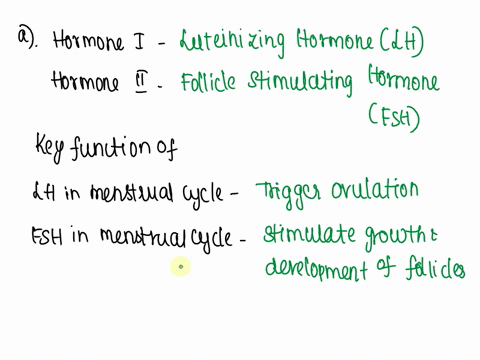 a). Hormone I - Luteinizing Hormone (LH)
Hormone II - Follicle Stimulating Hormone
(FSH)
Key function of
LH in menstrual cycle - Trigger ovulation
FSH in menstrual cycle - Stimulate growth &
development of follicles